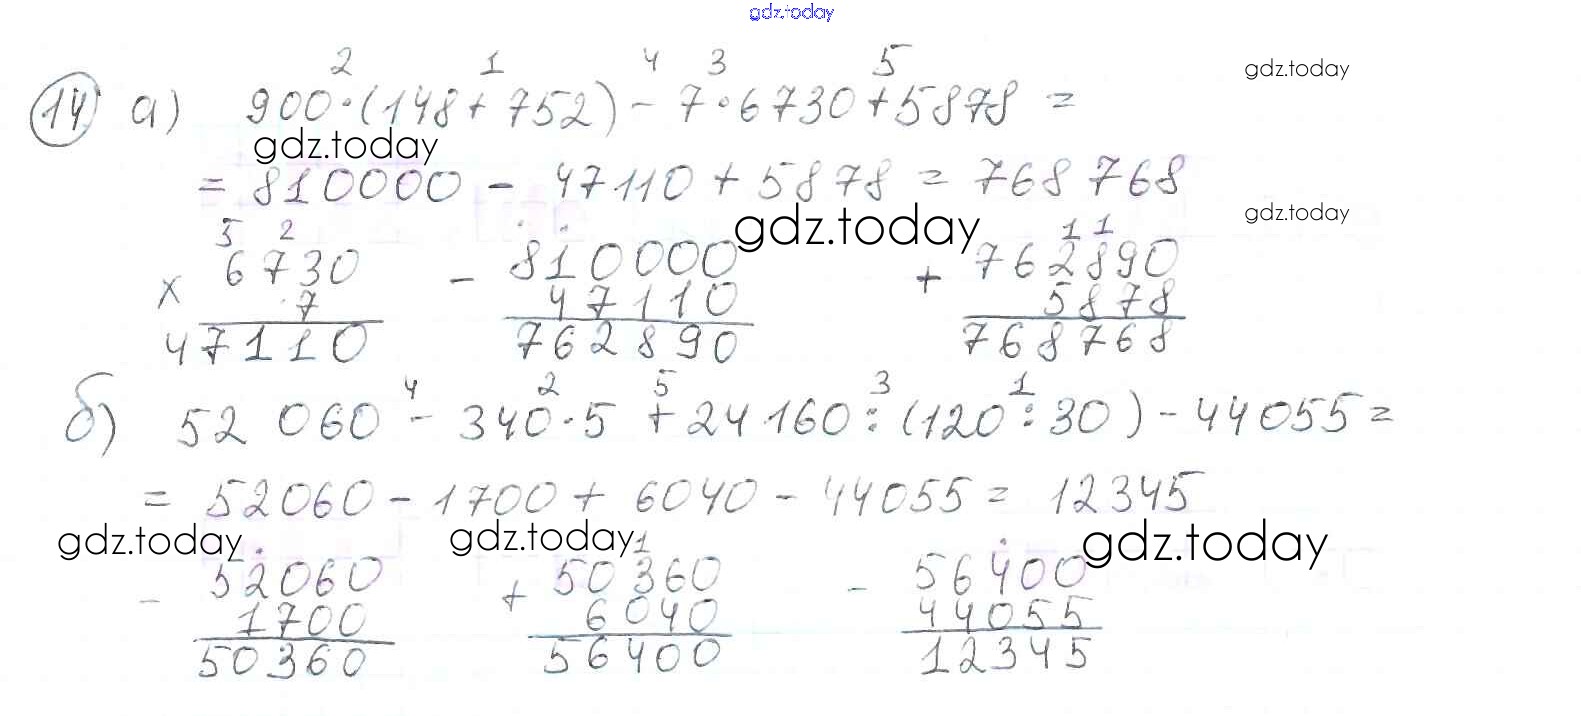 gdz.today
2 1 4 3 5
14 а) 900·(148+752)-7·6730+5878=
gdz.today
gdz.today
=810000-47110+5878=768768
gdz.today
gdz.today
5 2
× 6730
7
47110
- 810000
47110
762890
1 1
+ 762890
5878
768768
4 2 5 3 1
б) 52 060-340·5+24160:(120:30)-44055=
=52060-1700+6040-44055=12345
gdz.today
gdz.today
gdz.today
- 52060
1700
50360
1
+ 50360
6040
56400
- 56400
44055
12345